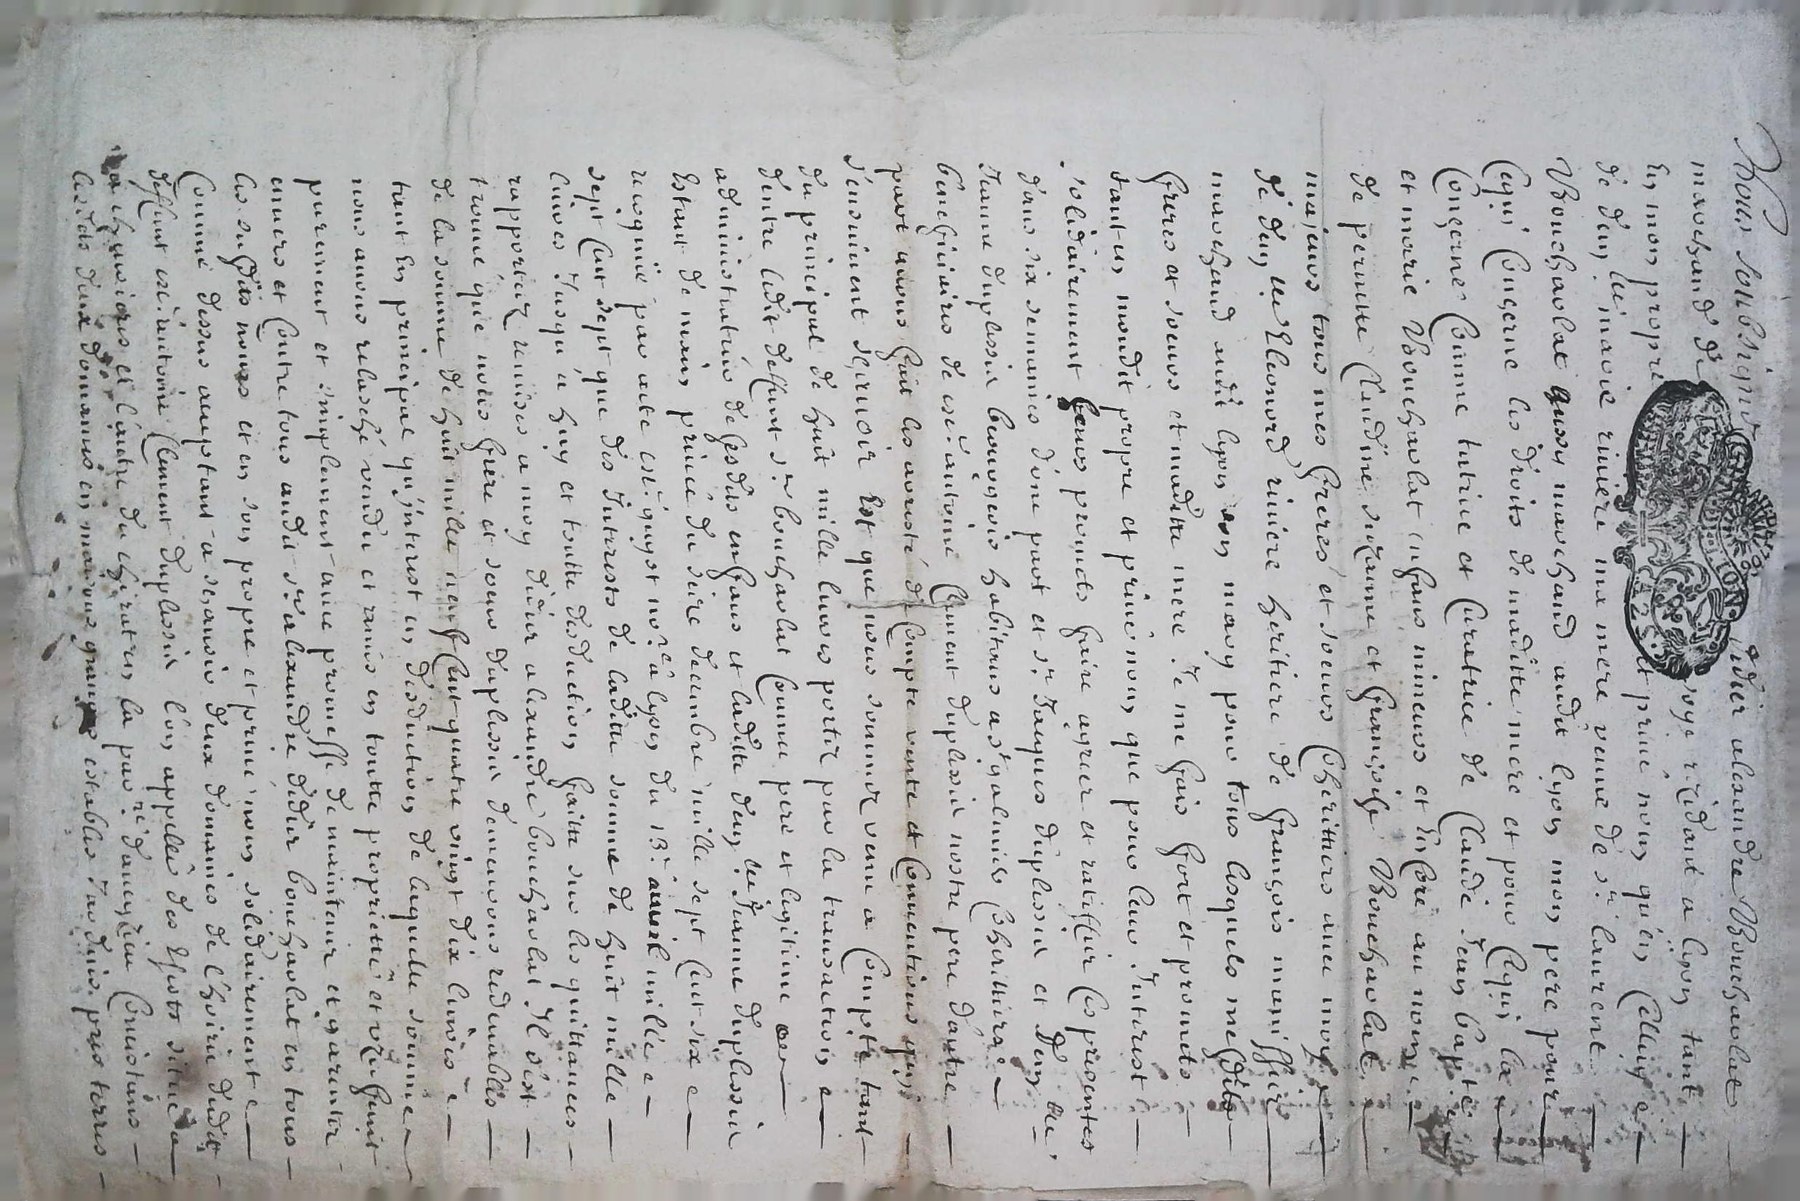 Nous soubsignés didier alexandre Bouchardat
marchand de soye rézidant a lyon tant
En mon propre et privé nom qu'en celluy
de dam.lle marie riviere ma mere veuve de s.r laurent
Bouchardat quand marchand audit lyon mon pere pour
Cequi Conserne les droits de madite mere et pour Cequi la
Conserne Comme tutrice et Curatrice de Claude Jean baptiste
et marie Bouchardat enfans mineurs et Encore au nom
de pernette Claudine suzanne et françoise Bouchardat
majeurs tous mes freres et soeurs Coheritiers avec moy
de dam.lle Eleonord riviere heritiere de françois
marchand audit lyon son mary pour tous lesquels mesdits
freres et soeurs et madite mere Je me fais fort et promets
tant en mondit propre et privé nom que pour leur Interest
solidairement leurs promets faire agreer et ratiffier Ces presentes
dans six semaines d'une part et s.r Jaques duplessis et dam.lle
Janne duplessis bourgeois habitans a s.t galmier Coheritiers
beneficiaires de s.r antoine Clement duplessis nostre pere d'autre
part avons fait les arresté de Compte vente et Conventions qui
s'ensuivent sçavoir Est que nous sommes venu a Compte tant
du principal de huit mille livres portés par la transaction
d'entre ledit deffunt s.r bouchardat Comme pere et legitime
administrateur de ses dits enfans et ladite dam.lle Jeanne duplessis
Estant de main privée du seize decembre mille sept Cent six
reconnue par acte guyot no.re a lyon du 13.e avril mille
sept Cent sept que des Interests de ladite somme de huit mille
livres Jusqu'a huy et toutte deduction faitte sur les quittances
rapportées remises a moy didier alexandre bouchardat Il s'est
trouvé que nous frere et soeur duplessis demeurons redevables
de la somme de huit mille neuf Cent quatre vingt dix livres
tant en principal qu'interest en deduction de laquelle somme
nous avons relasché vendu et remis en toutte proprietté et
purement et simplement avec promesse de maintenir et garentir
envers et Contre tous audit s.r alexandre didier bouchardat en tous
les susdits noms et en son propre et privé nom solidairement
Comme dessus acceptant a sçavoir deux domaines de l'hoirie dudit
deffunt s.r antoine Clement duplessis l'un appellé des situé
et l'autre du en la par.e d'aveizieu Consistans
lesdits deux domaines en maisons grange estables Jardins prés terres